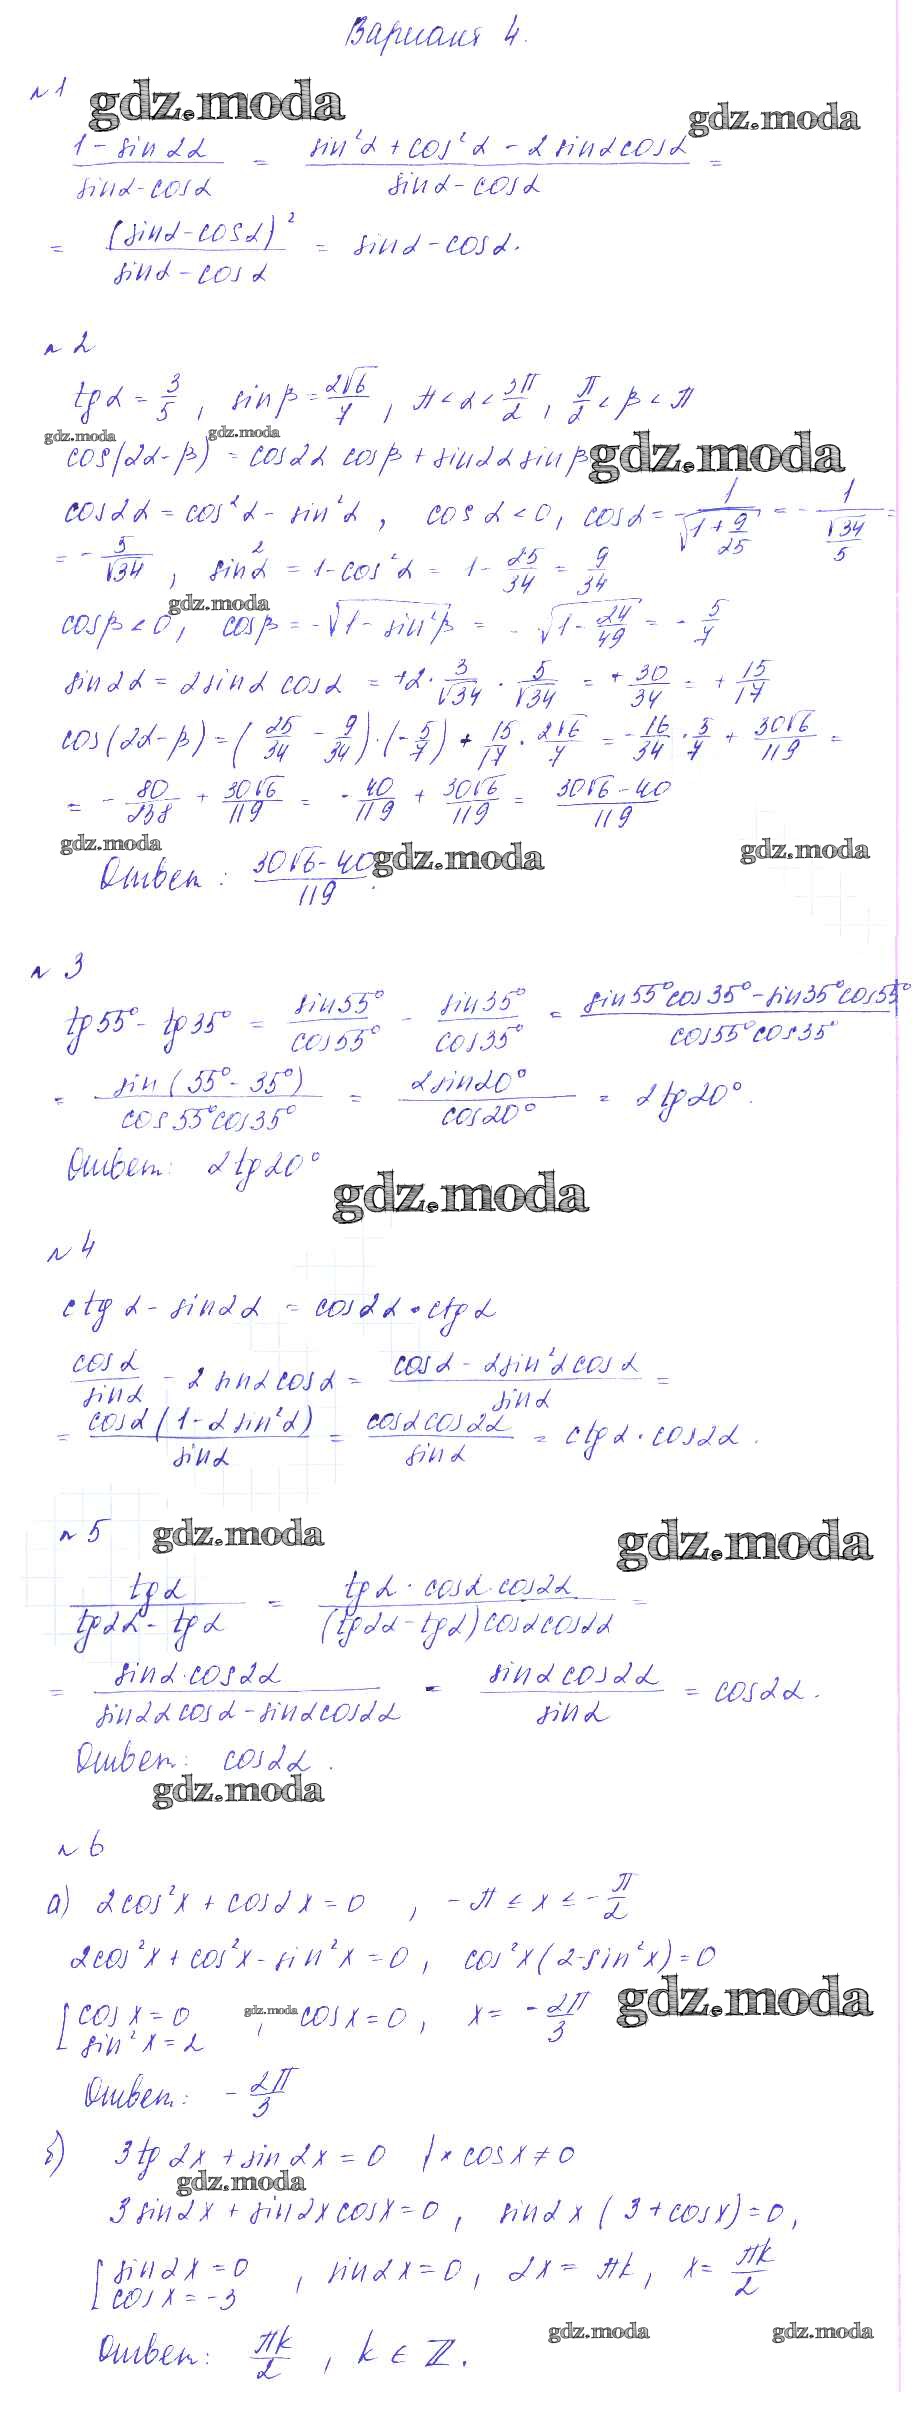 Вариант 4.
№1
gdz.moda
gdz.moda
(1 - sin2α)/(sinα - cosα) = (sin²α + cos²α - 2sinαcosα)/(sinα - cosα) =
= (sinα - cosα)²/(sinα - cosα) = sinα - cosα.
№2
tgα = 3/5, sinβ = 2√6/7, π < α < 3π/2, π/2 < β < π
gdz.moda gdz.moda
cos(2α - β) = cos2α cosβ + sin2α sinβ
gdz.moda
cos2α = cos²α - sin²α, cosα < 0, cosα = -1/√(1 + 9/25) = -1/(√34/5) =
= -5/√34, sin²α = 1 - cos²α = 1 - 25/34 = 9/34
gdz.moda
cosβ < 0, cosβ = -√(1 - sin²β) = -√(1 - 24/49) = -5/7
sin2α = 2sinα cosα = +2·3/√34 · 5/√34 = +30/34 = +15/17
cos(2α - β) = (25/34 - 9/34)·(-5/7) + 15/17 · 2√6/7 = -16/34 · 5/7 + 30√6/119 =
= -80/238 + 30√6/119 = -40/119 + 30√6/119 = (30√6 - 40)/119
gdz.moda gdz.moda gdz.moda
Ответ: (30√6 - 40)/119.
№3
tg55° - tg35° = sin55°/cos55° - sin35°/cos35° = (sin55°cos35° - sin35°cos55°)/(cos55°cos35°)
= sin(55° - 35°)/(cos55°cos35°) = 2sin20°/cos20° = 2tg20°.
Ответ: 2tg20°
gdz.moda
№4
ctgα - sin2α = cos2α·ctgα
cosα/sinα - 2sinαcosα = (cosα - 2sin²αcosα)/sinα =
= cosα(1 - 2sin²α)/sinα = cosαcos2α/sinα = ctgα·cos2α.
№5
gdz.moda
gdz.moda
tgα/(tg2α - tgα) = (tgα·cosα·cos2α)/((tg2α - tgα)cosαcos2α) =
= (sinα·cos2α)/(sin2αcosα - sinαcos2α) = (sinαcos2α)/sinα = cos2α.
Ответ: cos2α.
gdz.moda
№6
а) 2cos²x + cos2x = 0, -π ≤ x ≤ -π/2
2cos²x + cos²x - sin²x = 0, cos²x(2-sin²x) = 0
[cosx = 0
sin²x = 2, cosx = 0, x = -2π/3
gdz.moda
gdz.moda
Ответ: -2π/3
б) 3tg2x + sin2x = 0 |×cosx ≠ 0
gdz.moda
3sin2x + sin2xcosx = 0, sin2x(3 + cosx) = 0,
[sin2x = 0
cosx = -3, sin2x = 0, 2x = πk, x = πk/2
gdz.moda gdz.moda
Ответ: πk/2, k ∈ Z.